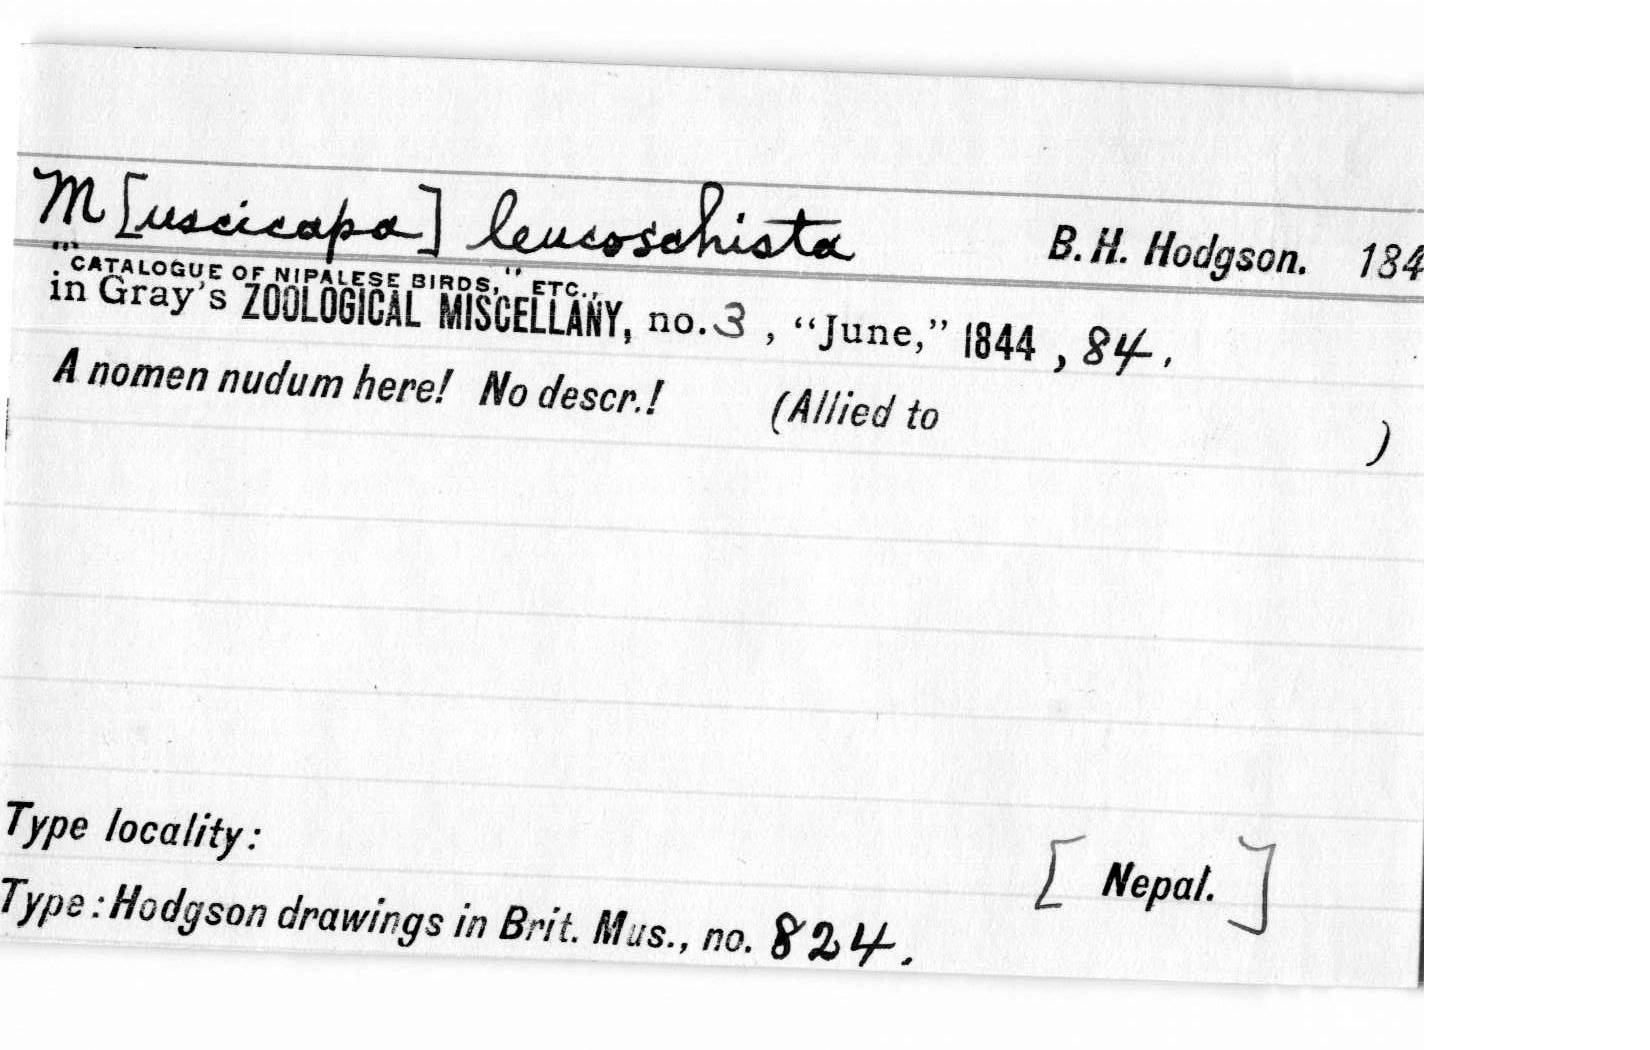 M[uscicapa] leucoschista B. H. Hodgson. 184
"CATALOGUE OF NIPALESE BIRDS," ETC.,
in Gray's ZOOLOGICAL MISCELLANY, no. 3, "June," 1844, 84.
A nomen nudum here! No descr.! (Allied to )
Type locality: [Nepal.]
Type: Hodgson drawings in Brit. Mus., no. 824.